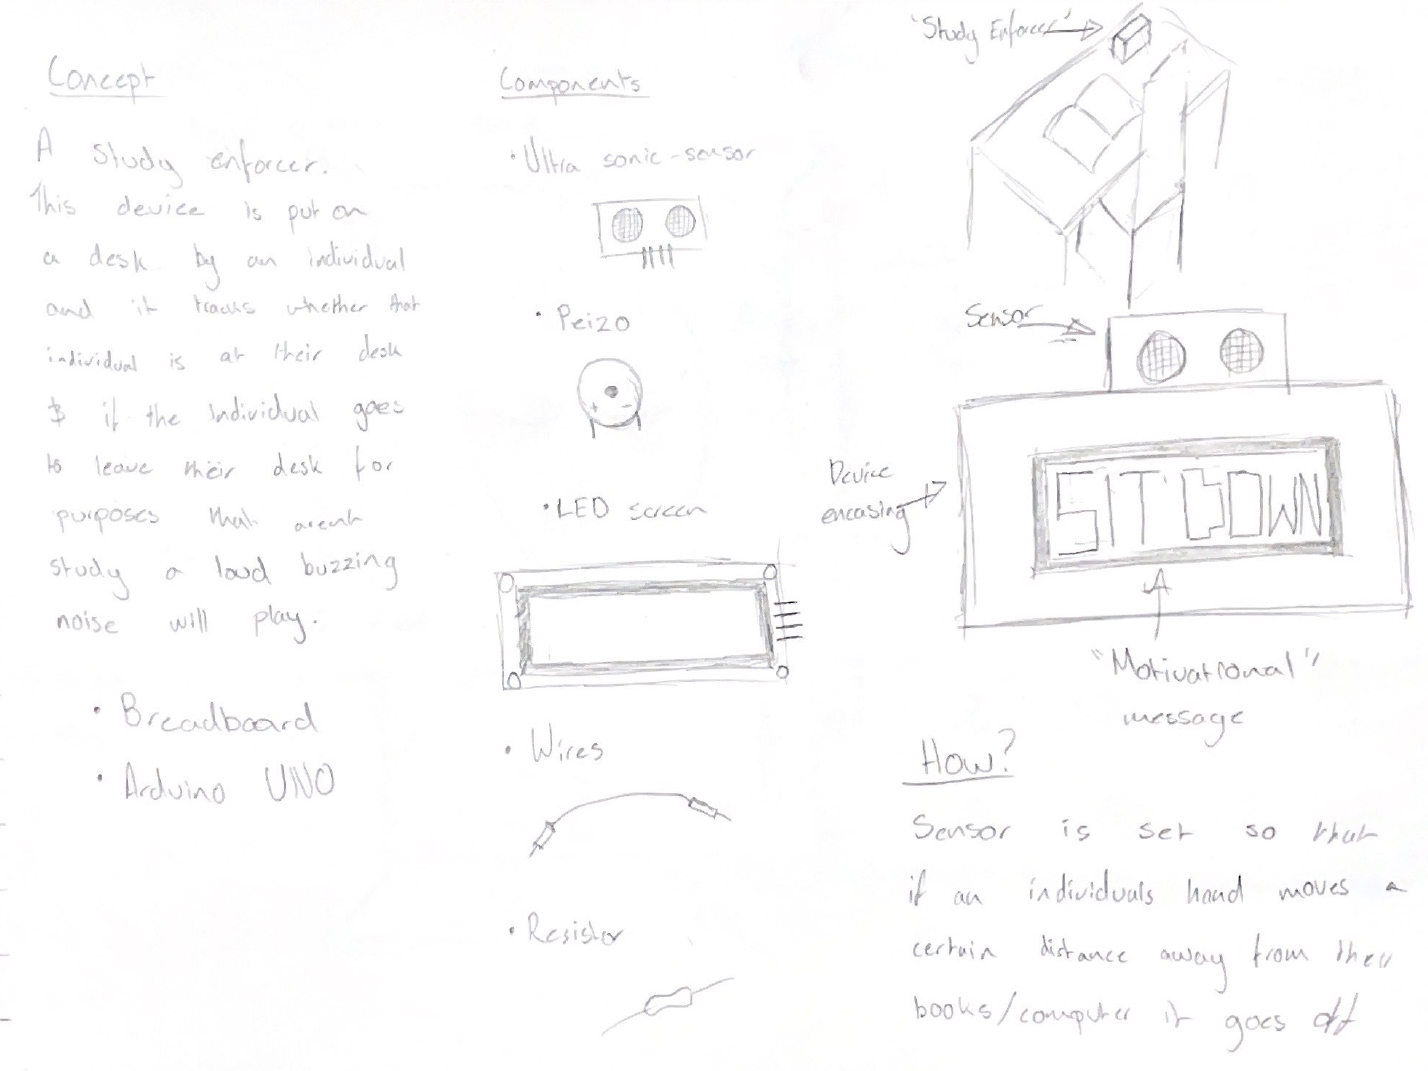 Concept
A study enforcer.
This device is put on
a desk by an individual
and it tracks whether that
individual is at their desk
& if the individual goes
to leave their desk for
purposes that arent
study a loud buzzing
noise will play.
• Breadboard
• Arduino UNO
Components
• Ultra sonic-sensor
• Peizo
+ -
• LED screen
• Wires
• Resistor
'Study Enforcer'
Sensor
Device
encasing
SIT DOWN
"Motivational"
message
How?
Sensor is set so that
if an individuals hand moves a
certain distance away from their
books/computer it goes off